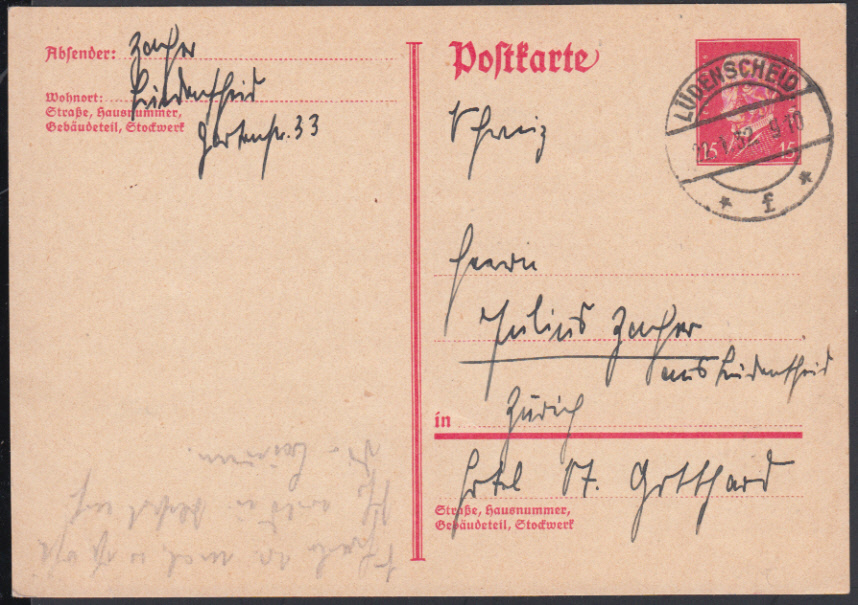 Absender: Zacher
Wohnort: Lüdenscheid
Straße, Hausnummer,
Gebäudeteil, Stockwerk
Gartenstr. 33
Postkarte
LÜDENSCHEID
1.32. 9-10
* f *
15 15
Schweiz
Herrn
Julius Zacher
aus Lüdenscheid
in Zürich
Hotel St. Gotthard
Straße, Hausnummer,
Gebäudeteil, Stockwerk